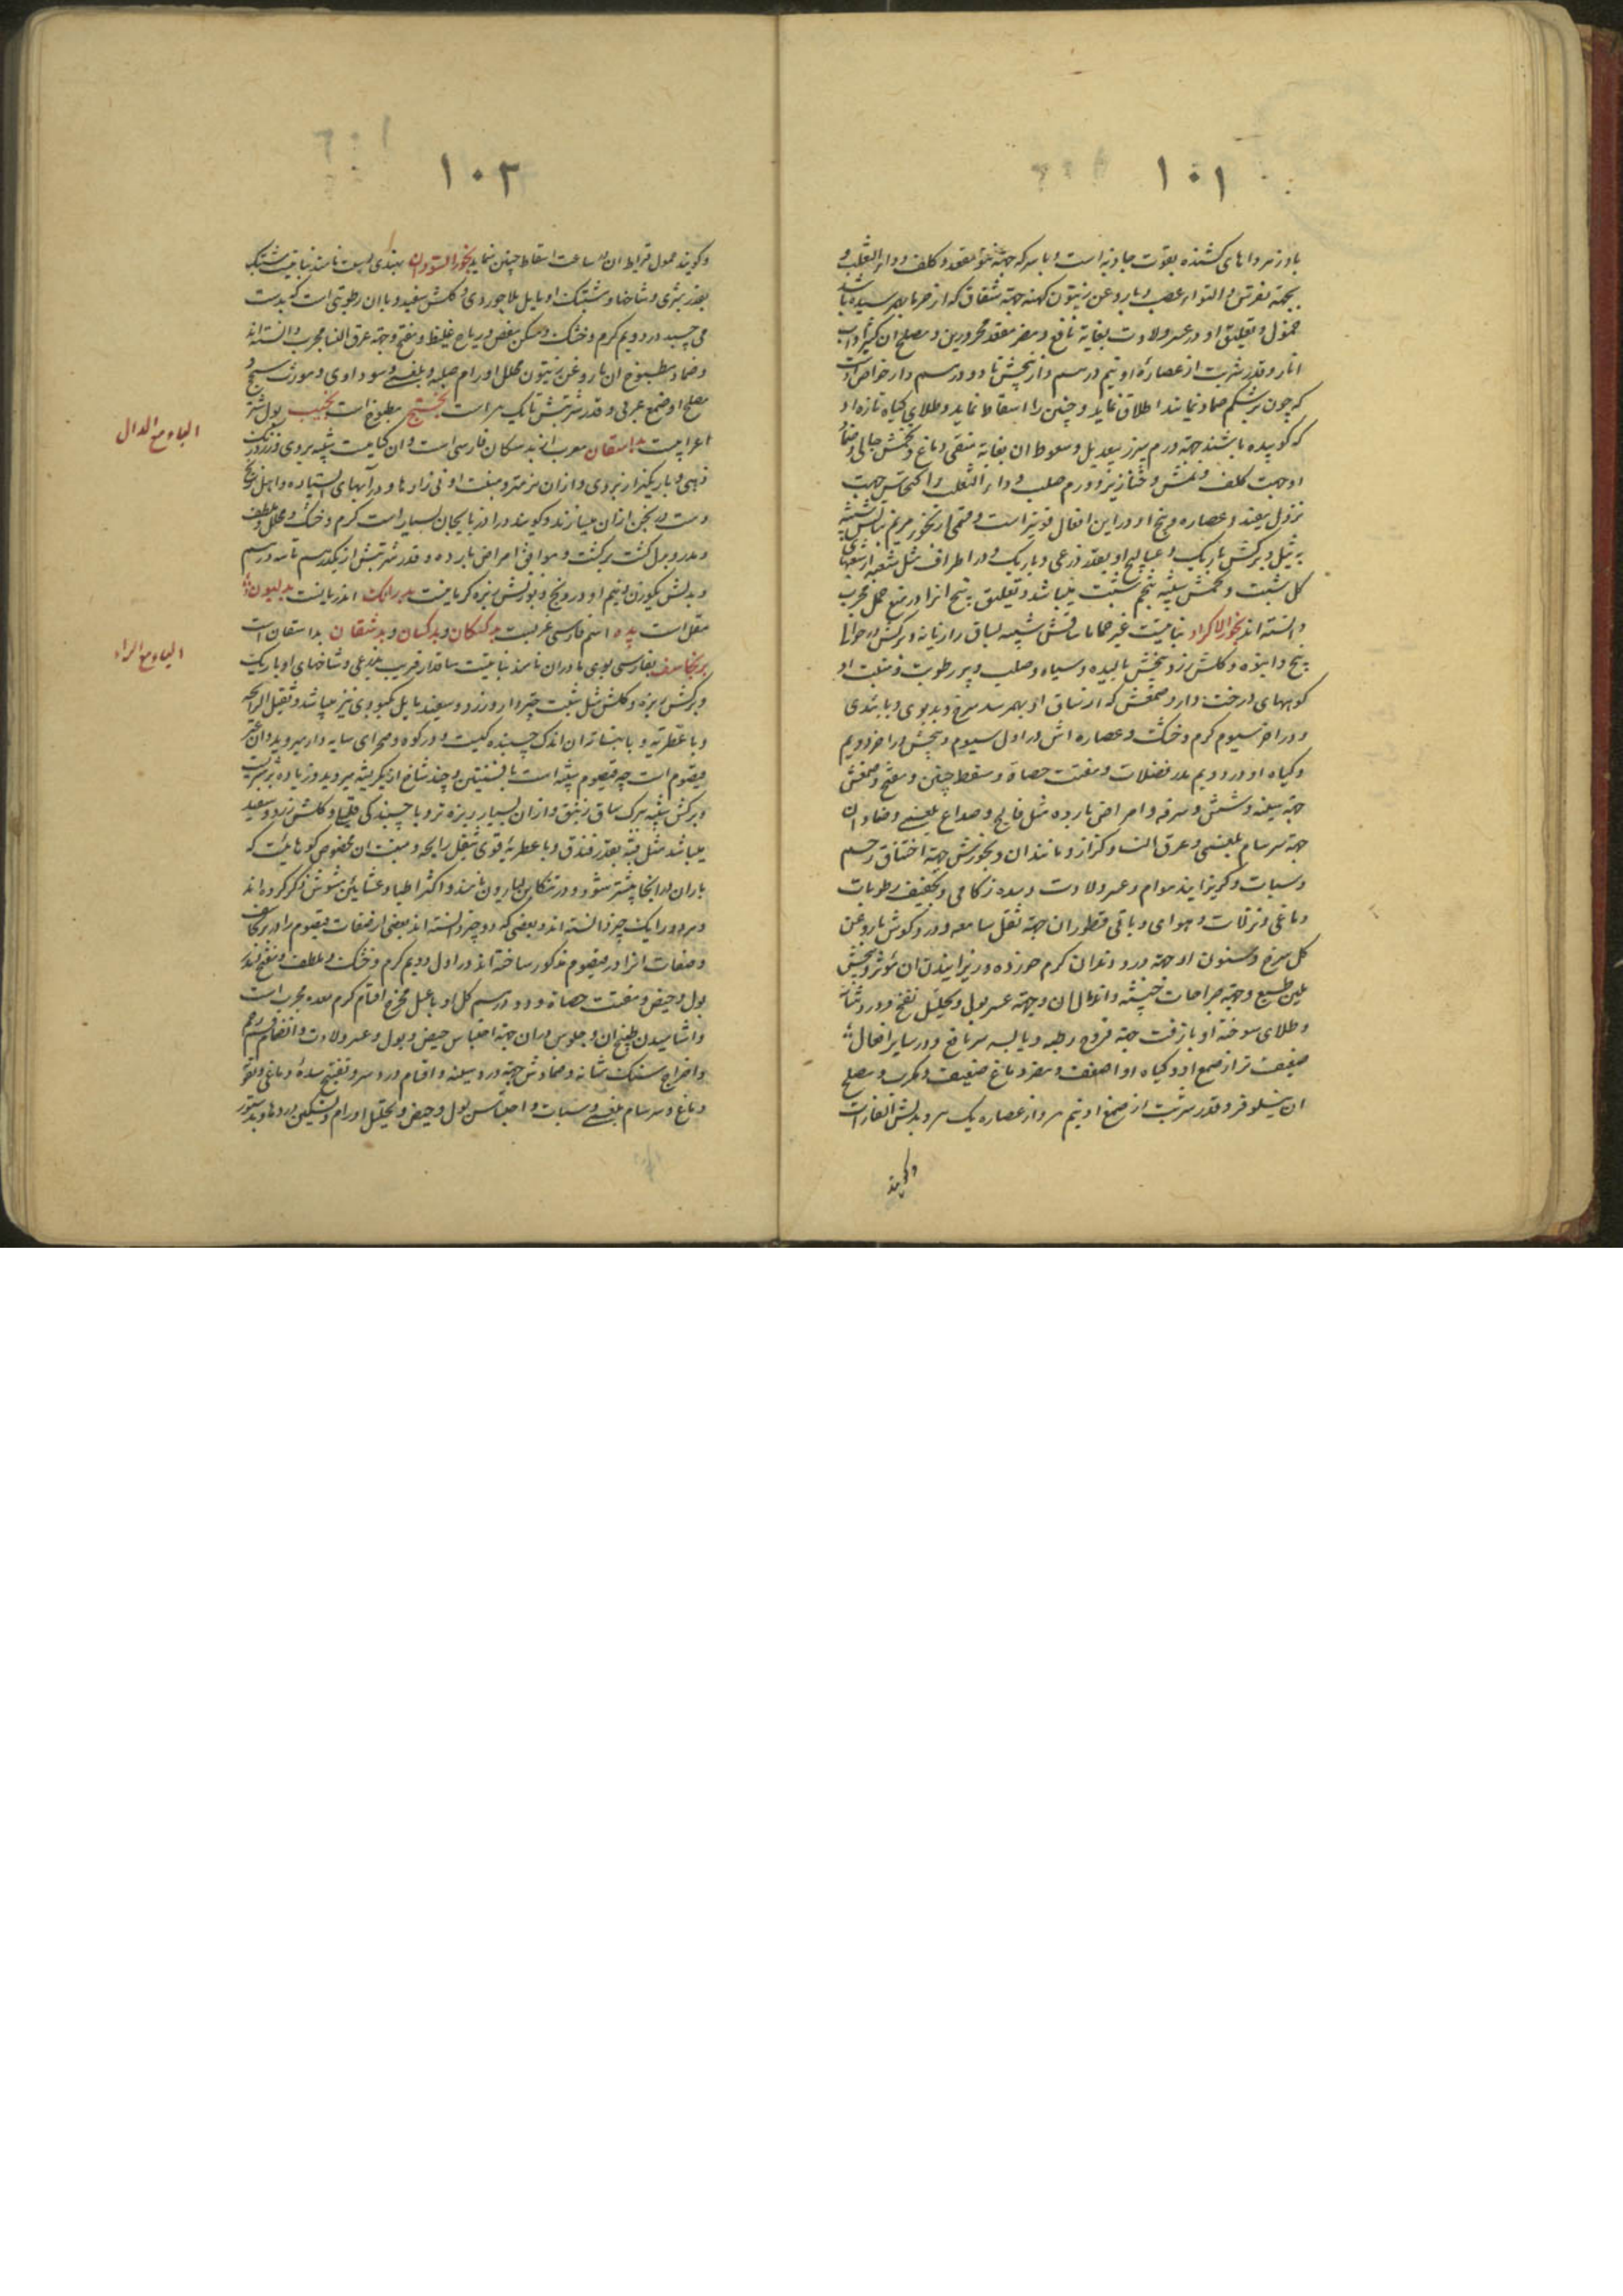 ۱۰۱
بادزهر دواهای کشنده بقوت جاذبه است و با سرکه جهة نتو مقعد و کلف و داء الثعلب و
بجهة نقرس و التواء عصب و با روغن زیتون کهنه جهة شقاق که از سرما بهم رسیده باشد
حمول و تعلیق او در عسر ولادت بغایة نافع و مضر مقعد محرورین و مصلح ان کثیرا و اب
انار و قدر شربت از عصارۀ او نیم درهم و از بیخش تا دو درهم و از خواص اوست
که چون بر شکم ضماد نمایند اطلاق نماید و جنین را اسقاط نماید و طلای گیاه تازه او
که کوبیده باشند جهة ورم سپرز بیعدیل و سعوط ان بغایة منقی دماغ و تخمش جالی و ضماد
او جهت کلف و نمش و خنازیر و ورم صلب و داء الثعلب و اکتحالش جهت
نزول مفید و عصاره و بیخ او در این افعال قویتر است و قسمی از بخور مریم
و برکش باریک و بقدر ذرعی و باریک و در اطراف مثل شعبه از شعبهای
کل شبت و تخمش شبیه بتخم شبت میباشد و تعلیق بیخ انرا در منع حمل مجرب
دانسته اند بخور الاکراد نباتیست ساقش شبیه بساق رازیانه و برکش در حوالی
بیخ و انبوه و کلش زرد و بیخش بالیده و سیاه و صلب و پر رطوبت و منبت او
کوههای درخت دار و صمغش که از ساق او بهم رسد سرخ و بدبوی و با تندی
و در اخر سیوم کرم و خشک و عصاره اش در اول سیوم و بیخش در اخر دویم
و گیاه او در دویم مدر فضلات و مفتت حصاة و مسقط جنین و مفتح و صمغش
جهة سینه و شش و سرفه و امراض بارده مثل فالج و صداع بلغمی و ضماد ان
جهة سرسام بلغمی و عرق النسا و کزاز و مانند ان و بخورش جهة اختناق رحم
و سبات و کریزانیدن هوام و عسر ولادت و سده زکامی و تجفیف رطوبات
دماغی و نزلات و هوای وبائی قطور ان جهة ثقل سامعه و درد کوش با روغن
کل سرخ و سنون او جهة درد دندان کرم خورده و ریزانیدن ان مؤثر و بیخش
ملین طبع و جهة جراحات خبیثه و اندمال ان و جهة عسر بول و تحلیل نفخ و درد مثانه
و طلای سوخته او با زفت جهة قروح رطبه و یابسه سر نافع و در سایر افعال
ضعیف تر از صمغ او و گیاه او اضعف و مضر دماغ ضعیف و مکرب و مصلح
ان نیلوفر و قدر شربت از صمغ او نیم درهم و از عصاره یک درهم و بدلش
وکویند
۱۰۲
وکویند حمول قیراط ان در ساعت اسقاط جنین نماید بخور السودان بهندی نامند نباتیست مشبک
بقدر شبری و شاخها و مشبک او مایل بلاجوردی و کلش سفید و با ان رطوبتی است که بدست
می چسبد در دویم کرم و خشک و مسکن مغص و ریاح غلیظ و مفتح و جهة عرق النسا مجرب دانسته اند
و ضماد مطبوخ ان با روغن زیتون محلل اورام صلبه و بلغمی و سوداوی و مورث سحج و
مصلح او صمغ عربی و قدر شربتش تا یک درهم است بختج مطبوخ است بخیت بول شتر
اعرابیست بداسقان معرب از بدسکان فارسی است و ان گیاهیست شبیه بروی
در آبهای ایستاده و اهل
و کویند در اذربایجان بسیار است کرم و خشک و محلل و ملطف
و مدر و بدل کشت برکشت و موافق امراض بارده و قدر شربتش از یکدرهم تا سه درهم
و بدلش بوزن و نیم او درونج و بوزنش زیره کرمانیست بدرانک بدلیون
مقل است بده اسم فارسی غربست بدکشکان و بدکسان و بدشقان بداسقان است
برنجاسف بفارسی بوی مادران نامند نباتیست ساقدار قریب بذرعی و شاخهای او باریک
و برکش ریزه و کلش مثل شبت چتردار و زرد و سفید مایل بکبودی نیز میباشد و ثقیل الرایحه
و با عطریة و با ان اندک چسبندگیست و در کوه و صحرای سایه دار میروید و ان غیر
قیصوم است چه قیصوم شبیه است بافسنتین و چند شاخ از یک ریشه میروید و زیاده بر شبریست
و برکش شبیه ببرک و از ان بسیار ریزه تر و با چسبندگی و کلش زرد و سفید
میباشد مثل قبه بقدر فندق و با عطریۀ قوی ثقیل الرایحه و منبت ان مخصوص کوهیست که
باران در انجا بیشتر شود و در تنکابن نامند و اکثر اطبا و عشابین مشوش ذکر کرده اند
و هردو را یک چیز دانسته اند و بعضی که دو چیز دانسته اند بعضی از صفات قیصوم را در برنجاسف
و صفات انرا در قیصوم مذکور ساخته اند در اول دویم کرم و خشک و ملطف و مفتح و مدر
بول و حیض و مفتت حصاة و دو درهم کل او با عسل مخرج اقسام کرم معده مجرب است
و اشامیدن طبیخ ان و جلوس در ان جهة احتباس حیض و بول و عسر ولادت و انضمام رحم
و اخراج سنک مثانه و ضمادش جهة درد سینه و اقسام درد سر و تفتیح سدۀ دماغی و تقویة
دماغ و سرسام بلغمی و سبات و احتباس بول و حیض و تحلیل اورام و تسکین دردها و بدستور
الباء مع الدال
الباء مع الراء